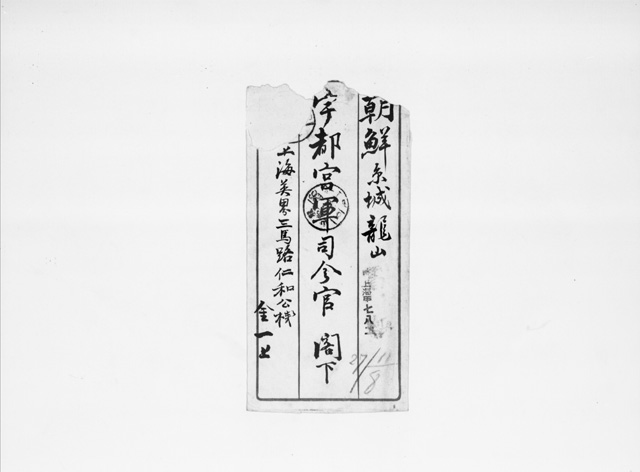 朝鮮京城龍山
宇都宮軍司令官 閣下
上海英界三馬路仁和公棧
金一上
上海
七八
27/11
8